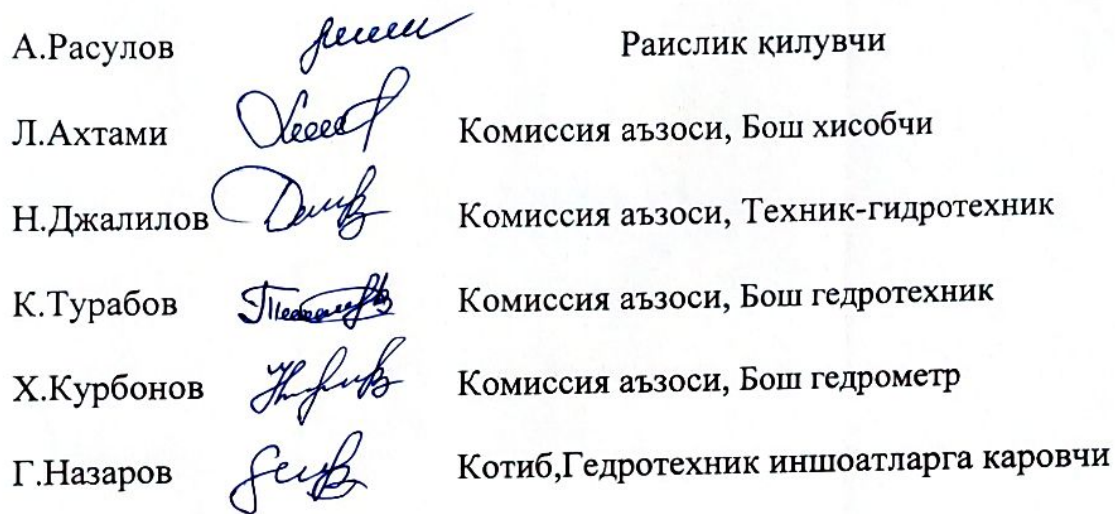 А.Расулов Раислик қилувчи
Л.Ахтами Комиссия аъзоси, Бош хисобчи
Н.Джалилов Комиссия аъзоси, Техник-гидротехник
К.Турабов Комиссия аъзоси, Бош гедротехник
Х.Курбонов Комиссия аъзоси, Бош гедрометр
Г.Назаров Котиб,Гедротехник иншоатларга каровчи